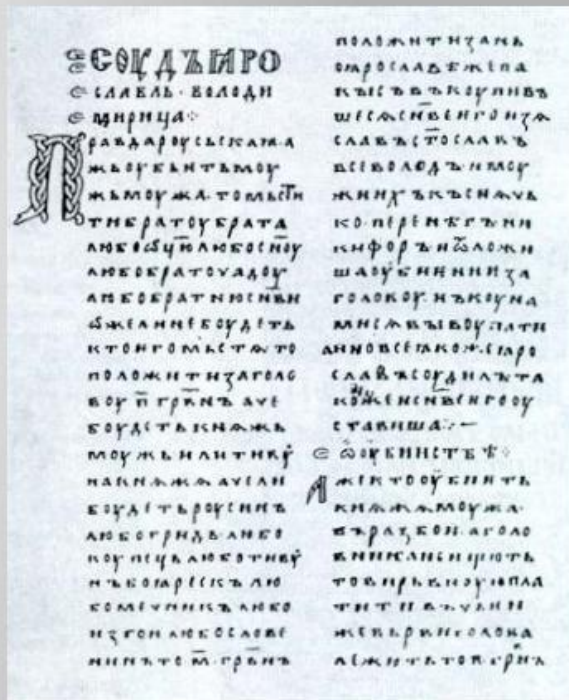 СОУДЪ ꙖРО
СЛАВЛЬ · ВОЛОДИ
МИРИЦА⁘
Правда роусьскаꙗ · а
жь оубьѥть моу
жь моужа · то мьсти
ти братоу брата
любо ѿцю любо сн҃оу
любо братоучадоу
любо братню сн҃ви
ѡже ли не боудеть
кто ѥго мьстѧ то
положити за голо
воу п҃ грв҃нъ аче
боудеть кнѧжь
моужь или тиву
на кнѧжа аче ли
боудеть роусинъ
любо гридь любо
коупець любо тиву
нъ боꙗрескъ лю
бо мечникъ любо
изгои любо слове
нинъ то м҃ грв҃нъ
положити за нь
по ꙗрославѣ же па
кы съвъкоупивъ
шесѧ сн҃ве ѥго изѧ
славъ ст҃ославъ
всеволодъ и моу
жи ихъ къснѧчь
ко · перенѣгъ ни
кифоръ и ѿложи
ша оубиениѥ за
головоу нъ коуна
ми сѧ выкоупати
а ино все ꙗкоже ꙗро
славъ соудилъ та
коже и сн҃ве ѥго оу
ставиша⁘
ѡ оубииствѣ⁘
Аже кто оубиѥть
кнѧжа моужа ·
въ разбои а голо
вника не ищють
то вирьвноую пла
тити въ чьеи
же вьрви голова
лежить то п҃ грв҃нъ